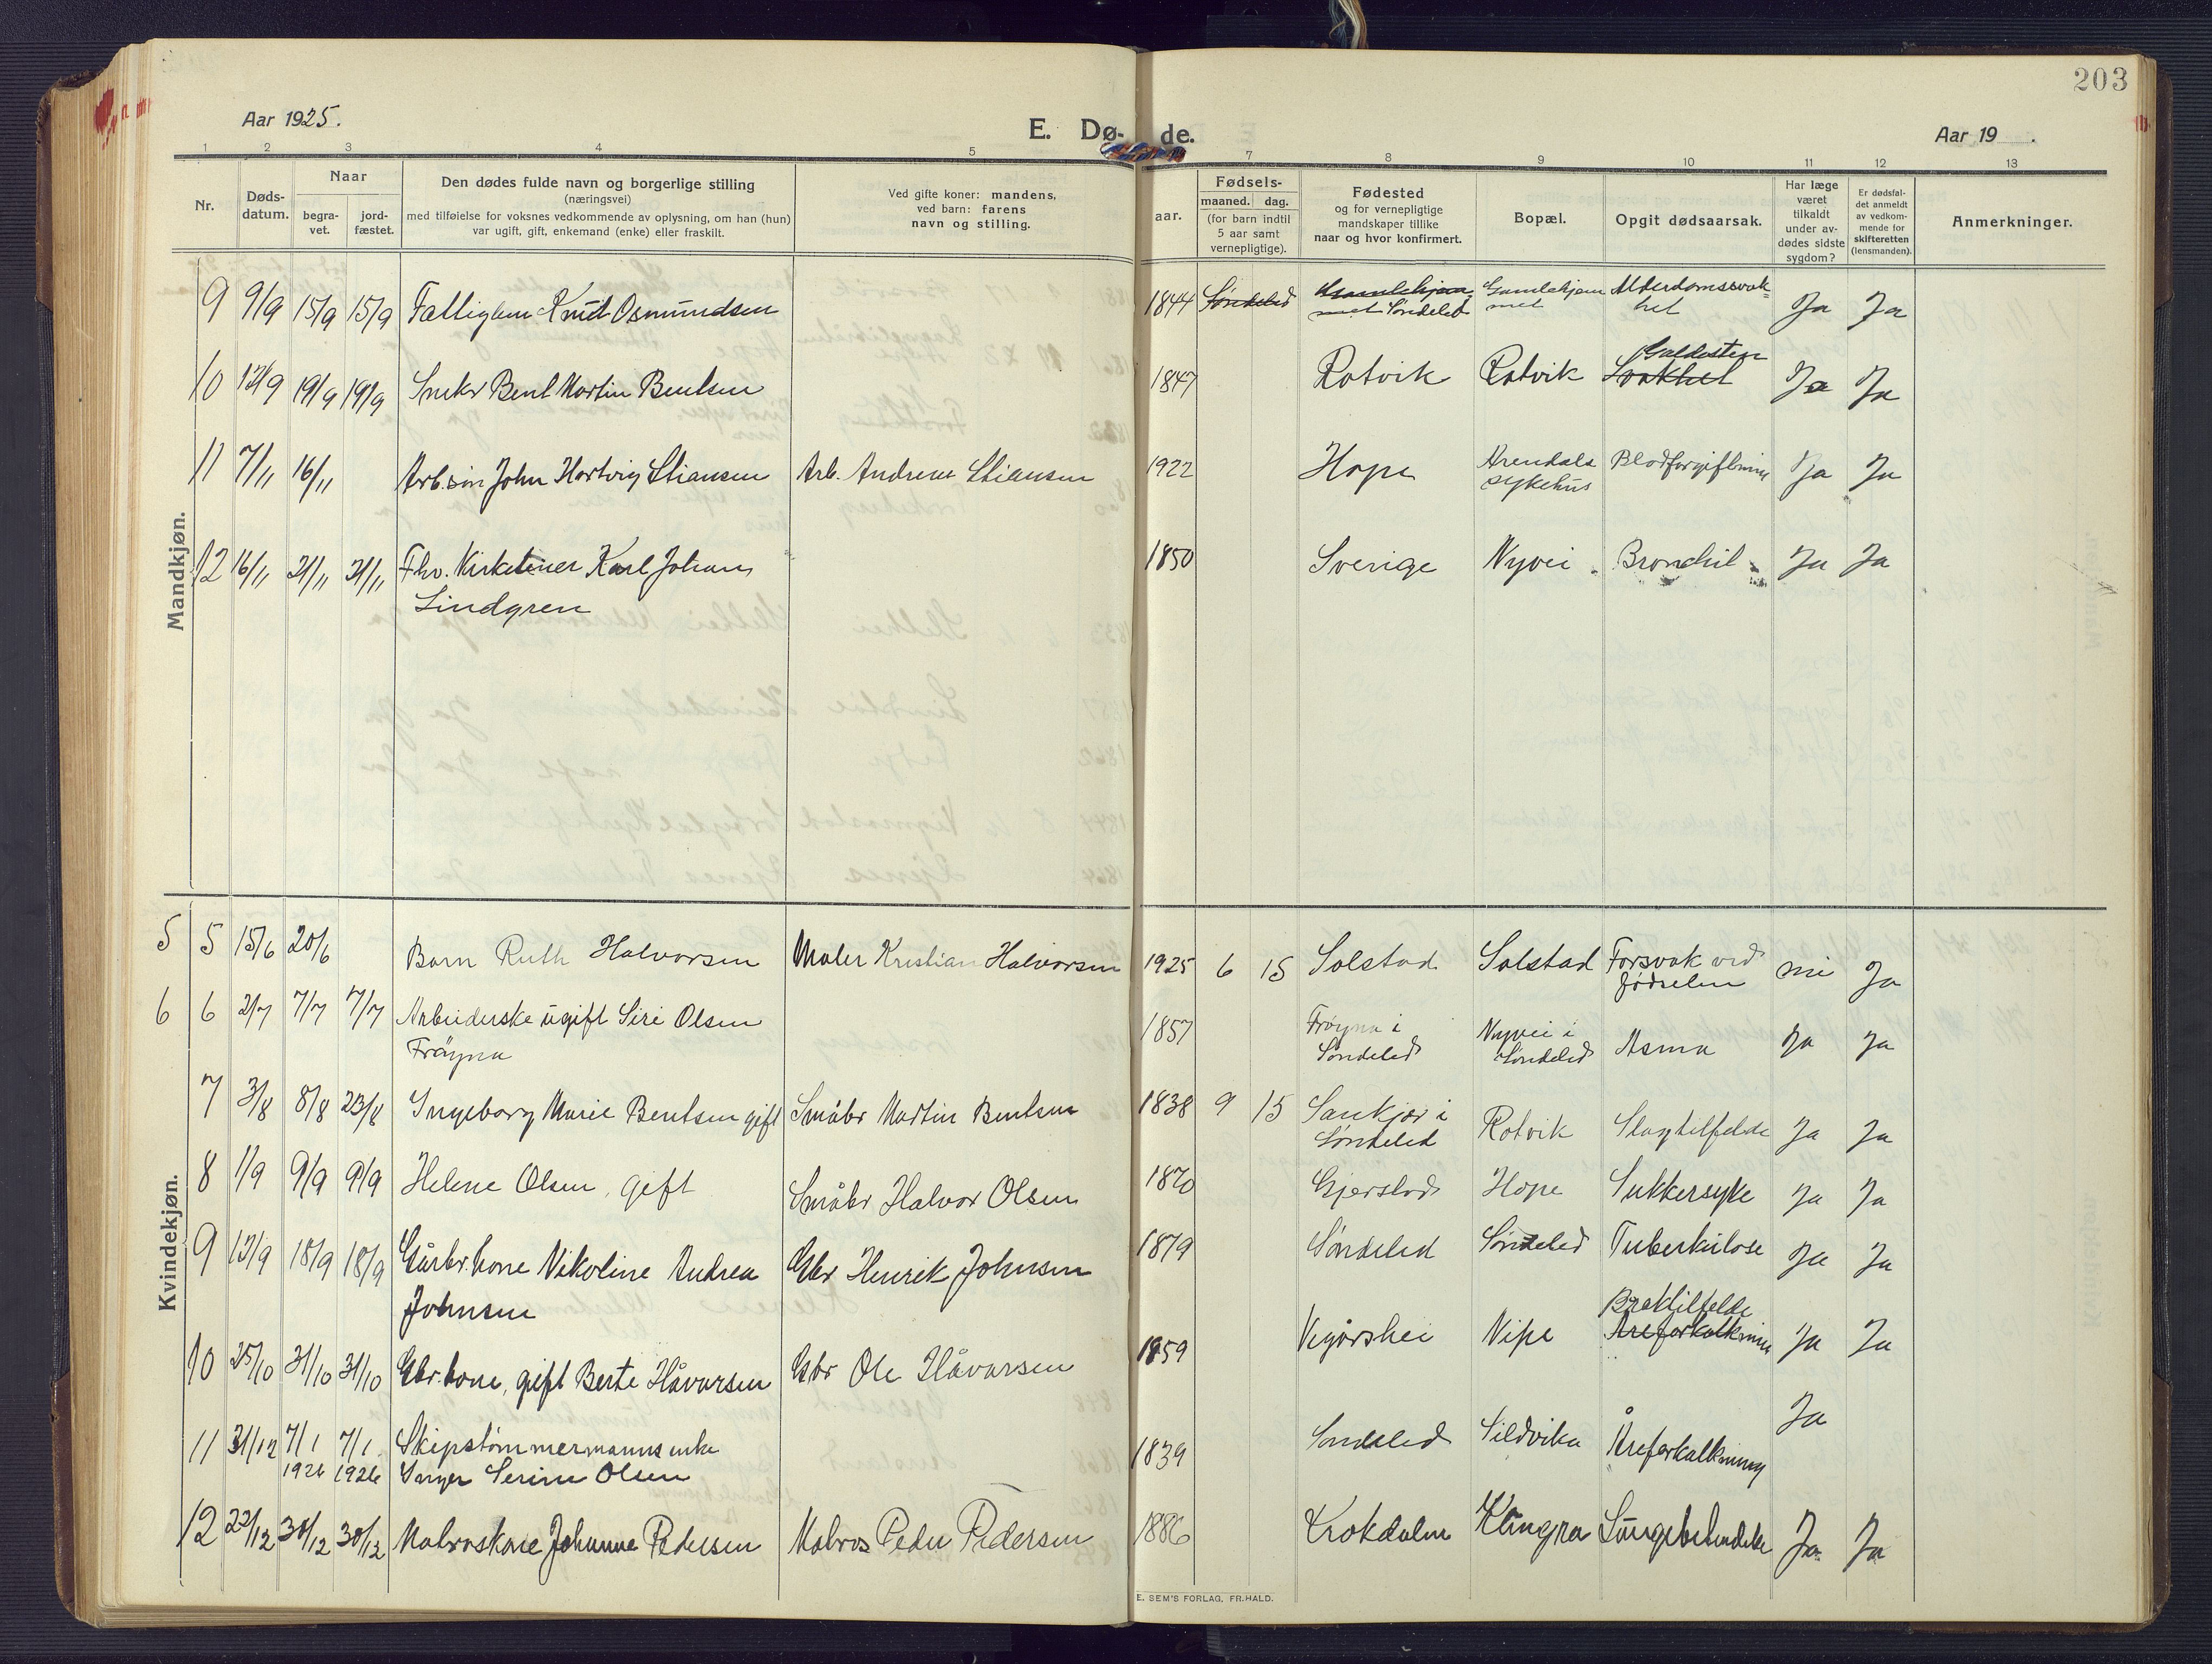 203
Aar 1925.
E. Dø- de.
Aar 19 .
1 2 3 4 5 7 8 9 10 11 12 13
Nr.
Døds-
datum.
Naar
begra-
vet.
jord-
fæstet.
Den dødes fulde navn og borgerlige stilling
(næringsvei)
med tilføielse for voksnes vedkommende av oplysning, om han (hun)
var ugift, gift, enkemand (enke) eller fraskilt.
Ved gifte koner: mandens,
ved barn: farens
navn og stilling.
aar.
Fødsels-
maaned. dag.
(for barn indtil
5 aar samt
vernepligtige).
Fødested
og for vernepligtige
mandskaper tillike
naar og hvor konfirmert.
Bopæl.
Opgit dødsaarsak.
Har læge
været
tilkaldt
under av-
dødes sidste
sygdom?
Er dødsfal-
det anmeldt
av vedkom-
mende for
skifteretten
(lensmanden).
Anmerkninger.
Mandkjøn.
9 9/9 15/9 15/9 Fattiglem Knut Osmundsen 1844 Søndeled Gamlehjem
met Søndeled Gamlehjem
met Alderdomssvak-
het Ja Ja
10 12/9 19/9 19/9 Snekr Bent Martin Bentsen 1847 Rotvik Rotvik Galdesten
Svakhet Ja Ja
11 7/11 16/11 Arb.søn John Hartvig Stiansen Arb. Andreas Stiansen 1922 Hope Arendals
sykehus Blodforgiftning Ja Ja
12 16/11 21/11 21/11 Fhv. Kirketjener Karl Johan
Lindgren 1850 Sverige Nyvei Bronchit Ja Ja
Kvindekjøn.
5 5 15/6 20/6 Barn Ruth Halvorsen Maler Kristian Halvorsen 1925 6 15 Solstad Solstad Forsvak ved
fødselen nei Ja
6 6 2/7 7/7 7/7 Arbeiderske ugift Siri Olsen
Frøyna 1857 Frøyna i
Søndeled Nyvei i
Søndeled Asma Ja Ja
7 3/8 8/8 23/8 Ingeborg Marie Bentsen gift Småbr Martin Bentsen 1838 9 15 Sankjær i
Søndeled Rotvik Slagtilfelde Ja Ja
8 1/9 9/9 9/9 Helene Olsen, gift Småbr Halvor Olsen 1870 Gjerstad Hope Sukkersyke Ja Ja
9 12/9 18/9 18/9 Gårbr.kone Nikoline Andrea
Johnsen Gbr Henrik Johnsen 1879 Søndeled Søndeled Tuberkulose Ja Ja
10 25/10 31/10 31/10 Gbr.kone, gift Berte Håvorsen Gbr Ole Håvorsen 1859 Vegårshei Vipe Braktilfelde
Åreforkalkning Ja Ja
11 31/12 7/1
1926 7/1
1926 Skipstømmermanns enke
Inger Serine Olsen 1839 Søndeled Sildvika Åreforkalkning Ja
12 22/12 30/12 30/12 Matroskone Johanne Pedersen Matros Peder Pedersen 1886 Krokdalen Klingra Lungebetendelse Ja Ja
E. SEM'S FORLAG, FR.HALD.